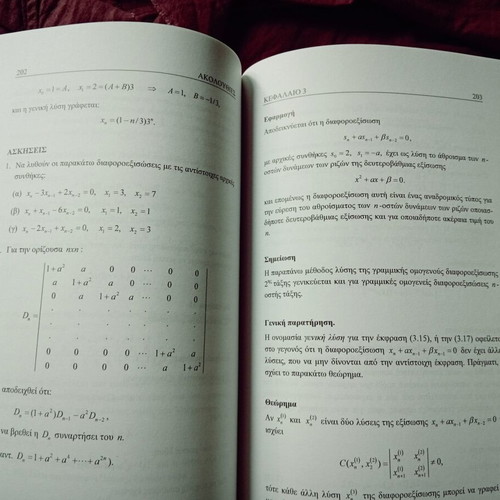 202
ΑΚΟΛΟΥΘΙΕΣ
x₀=1=A, x₁=2=(A+B)3 ⇒ A=1, B=-1/3,
και η γενική λύση γράφεται:
xₙ=(1-n/3)3ⁿ.
ΑΣΚΗΣΕΙΣ
1. Να λυθούν οι παρακάτω διαφοροεξισώσεις με τις αντίστοιχες αρχικές
συνθήκες:
(α) xₙ-3xₙ₋₁+2xₙ₋₂=0, x₁=3, x₂=7
(β) xₙ+xₙ₋₁-6xₙ₋₂=0, x₁=1, x₂=1
(γ) xₙ-2xₙ₋₁+xₙ₋₂=0, x₁=2, x₂=3
Για την ορίζουσα nxn:
Dₙ = | 1+a² a 0 0 ··· 0 0 |
| a 1+a² a 0 ··· 0 0 |
| 0 a 1+a² a ··· 0 0 |
| · · · · · · |
| · · · · · · |
| · · · · · · |
| 0 0 0 0 ··· 1+a² a |
| 0 0 0 0 ··· a 1+a² |
αποδειχθεί ότι:
Dₙ=(1+a²)Dₙ₋₁-a²Dₙ₋₂,
να βρεθεί η Dₙ συναρτήσει του n.
αντ. Dₙ=1+a²+a⁴+···+a²ⁿ).
ΚΕΦΑΛΑΙΟ 3
203
Εφαρμογή
Αποδεικνύεται ότι η διαφοροεξίσωση
xₙ+αxₙ₋₁+βxₙ₋₂=0,
με αρχικές συνθήκες x₀=2, x₁=-α, έχει ως λύση το άθροισμα των n-
οστών δυνάμεων των ριζών της δευτεροβάθμιας εξίσωσης
x²+αx+β=0.
και επομένως η διαφοροεξίσωση αυτή είναι ένας αναδρομικός τύπος για
την εύρεση του αθροίσματος των n-οστών δυνάμεων των ριζών οποιασ-
δήποτε δευτεροβάθμιας εξίσωσης και για οποιαδήποτε ακέραια τιμή του
n.
Σημείωση
Η παραπάνω μέθοδος λύσης της γραμμικής ομογενούς διαφοροεξίσωσης
2ης τάξης γενικεύεται και για γραμμικές ομογενείς διαφοροεξισώσεις n-
οστής τάξης.
Γενική παρατήρηση.
Η ονομασία γενική λύση για την έκφραση (3.15), ή την (3.17) οφείλεται
στο γεγονός ότι η διαφοροεξίσωση xₙ+αxₙ₋₁+βxₙ₋₂=0 δεν έχει άλλες
λύσεις, που να μην δίνονται από την αντίστοιχη έκφραση. Πράγματι,
ισχύει το παρακάτω θεώρημα.
Θεώρημα
Αν xₙ⁽¹⁾ και xₙ⁽²⁾ είναι δύο λύσεις της εξίσωσης xₙ+αxₙ₋₁+βxₙ₋₂=0
ισχύει
C(xₙ⁽¹⁾,xₙ⁽²⁾)= | xₙ⁽¹⁾ xₙ⁽²⁾ |
| xₙ₊₁⁽¹⁾ xₙ₊₁⁽²⁾ | ≠0,
τότε κάθε άλλη λύση xₙ⁽³⁾ της διαφοροεξίσωσης μπορεί να γραφεί